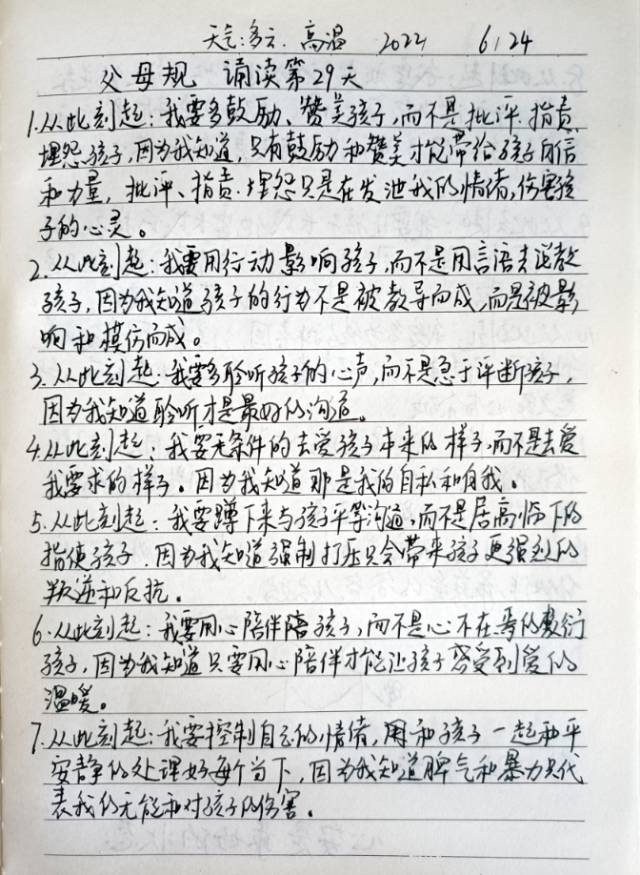 天气:多云、高温 2022 6/24
父母规 诵读第29天
1.从此刻起:我要多鼓励、赞美孩子,而不是批评.指责.
埋怨孩子,因为我知道,只有鼓励和赞美才能带给孩子自信
和力量,批评、指责.埋怨只是在发泄我的情绪,伤害孩
子的心灵。
2.从此刻起:我要用行动影响孩子,而不是用言语去说教
孩子,因为我知道孩子的行为不是被教导而成,而是被影
响和模仿而成。
3.从此刻起:我要多聆听孩子的心声,而不是急于评断孩子,
因为我知道聆听才是最好的沟通。
4.从此刻起:我要无条件的去爱孩子本来的样子,而不是去爱
我要求的样子。因为我知道那是我的自私和自我。
5.从此刻起:我要蹲下来与孩子平等沟通,而不是居高临下的
指使孩子.因为我知道强制打压只会带来孩子更强烈的
叛逆和反抗。
6.从此刻起:我要用心陪伴陪孩子,而不是心不在焉的敷衍
孩子,因为我知道只要用心陪伴才能让孩子感受到爱的
温暖。
7.从此刻起:我要控制自己的情绪,用和孩子一起和平
安静的处理好每个当下,因为我知道脾气和暴力只代
表我的无能和对孩子的伤害。